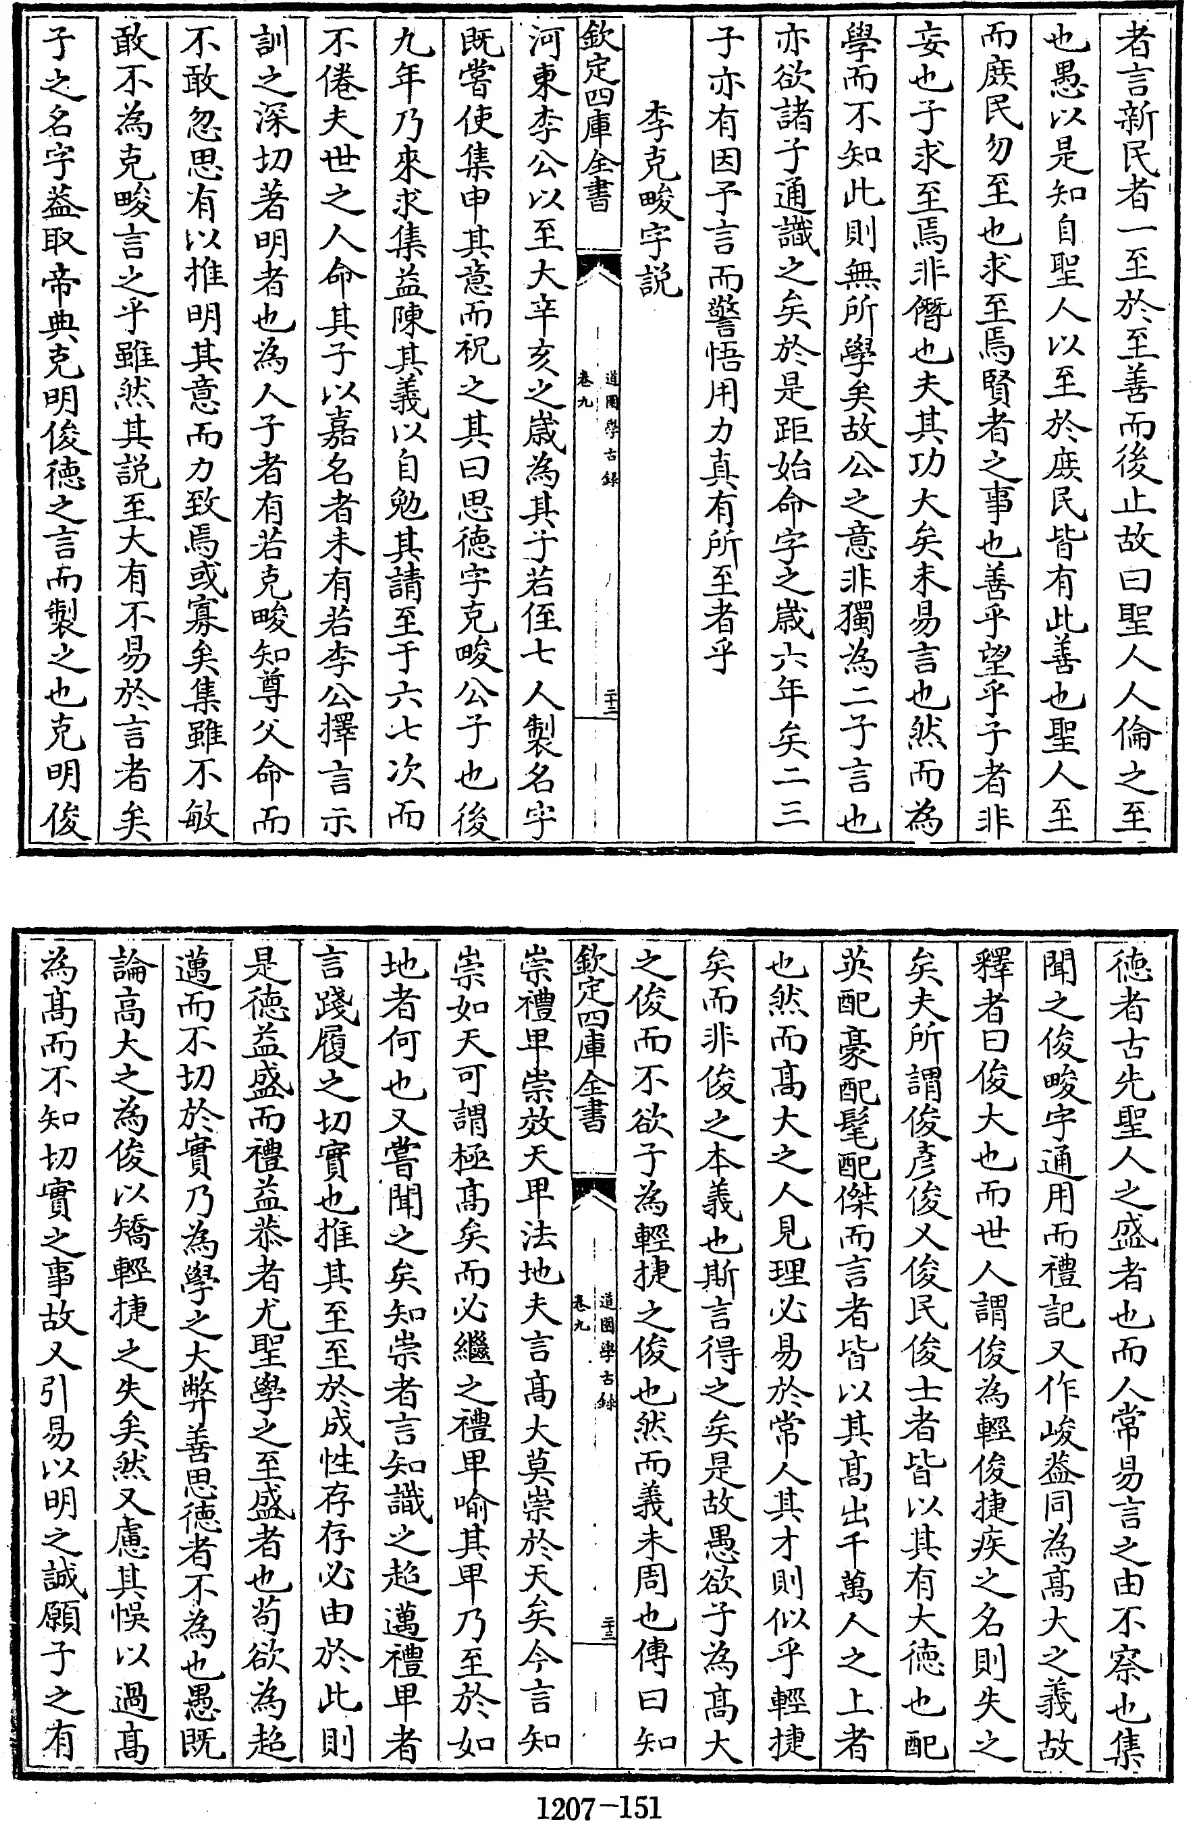 者言新民者一至於至善而後止故曰聖人人倫之至
也愚以是知自聖人以至於庻民皆有此善也聖人至
而庻民勿至也求至焉賢者之事也善乎望乎子者非
妄也子求至焉非僭也夫其功大矣未易言也然而為
學而不知此則無所學矣故公之意非獨為二子言也
亦欲諸子通識之矣於是距始命字之嵗六年矣二三
子亦有因予言而警悟用力真有所至者乎
李克畯字説
欽定四庫全書
道園學古録
卷九
二十二
河東李公以至大辛亥之嵗為其子若侄七人製名字
既嘗使集申其意而祝之其曰思徳字克畯公子也後
九年乃來求集益陳其義以自勉其請至于六七次而
不倦夫世之人命其子以嘉名者未有若李公擇言示
訓之深切著明者也為人子者有若克畯知尊父命而
不敢忽思有以推明其意而力致焉或寡矣集雖不敏
敢不為克畯言之乎雖然其説至大有不易於言者矣
子之名字葢取帝典克明俊徳之言而製之也克明俊
徳者古先聖人之盛者也而人常易言之由不察也集
聞之俊畯字通用而禮記又作峻葢同為髙大之義故
釋者曰俊大也而世人謂俊為輕俊捷疾之名則失之
矣夫所謂俊彦俊乂俊民俊士者皆以其有大徳也配
英配豪配髦配傑而言者皆以其髙出千萬人之上者
也然而髙大之人見理必易於常人其才則似乎輕捷
矣而非俊之本義也斯言得之矣是故愚欲子為髙大
之俊而不欲子為輕捷之俊也然而義未周也傳曰知
欽定四庫全書
道園學古録
卷九
二十三
崇禮卑崇效天卑法地夫言髙大莫崇於天矣今言知
崇如天可謂極髙矣而必繼之禮卑喻其卑乃至於如
地者何也又嘗聞之矣知崇者言知識之超邁禮卑者
言踐履之切實也推其至至於成性存存必由於此則
是徳益盛而禮益恭者尤聖學之至盛者也苟欲為超
邁而不切於實乃為學之大弊善思徳者不為也愚既
論髙大之為俊以矯輕捷之失矣然又慮其悞以過髙
為髙而不知切實之事故又引易以明之誠願子之有
1207-151